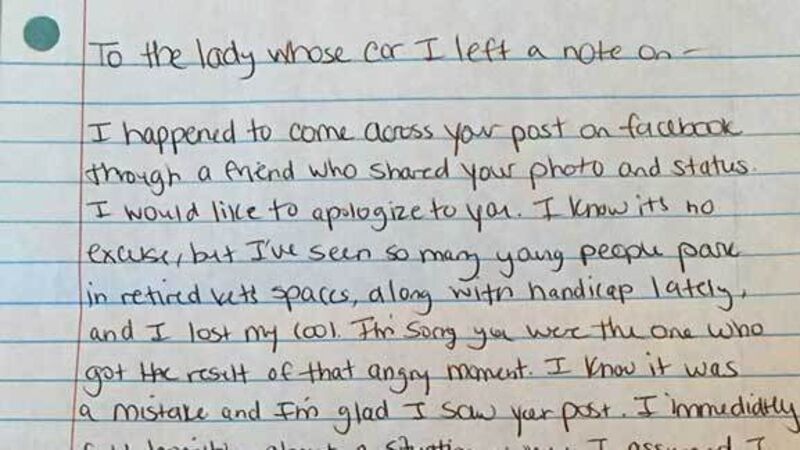 To the lady whose car I left a note on -
I happened to come across your post on facebook
through a friend who shared your photo and status.
I would like to apologize to you. I know its no
excuse, but I've seen so many young people park
in retired vets spaces, along with handicap lately,
and I lost my cool. I'm sorry you were the one who
got the result of that angry moment. I know it was
a mistake and I'm glad I saw your post. I immediatly
about a situation I assumed I